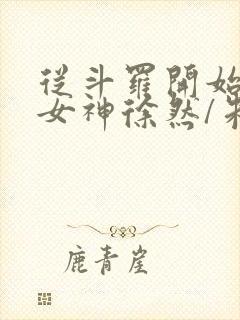 從斗羅開始
女神徐然/朱
鹿青崖